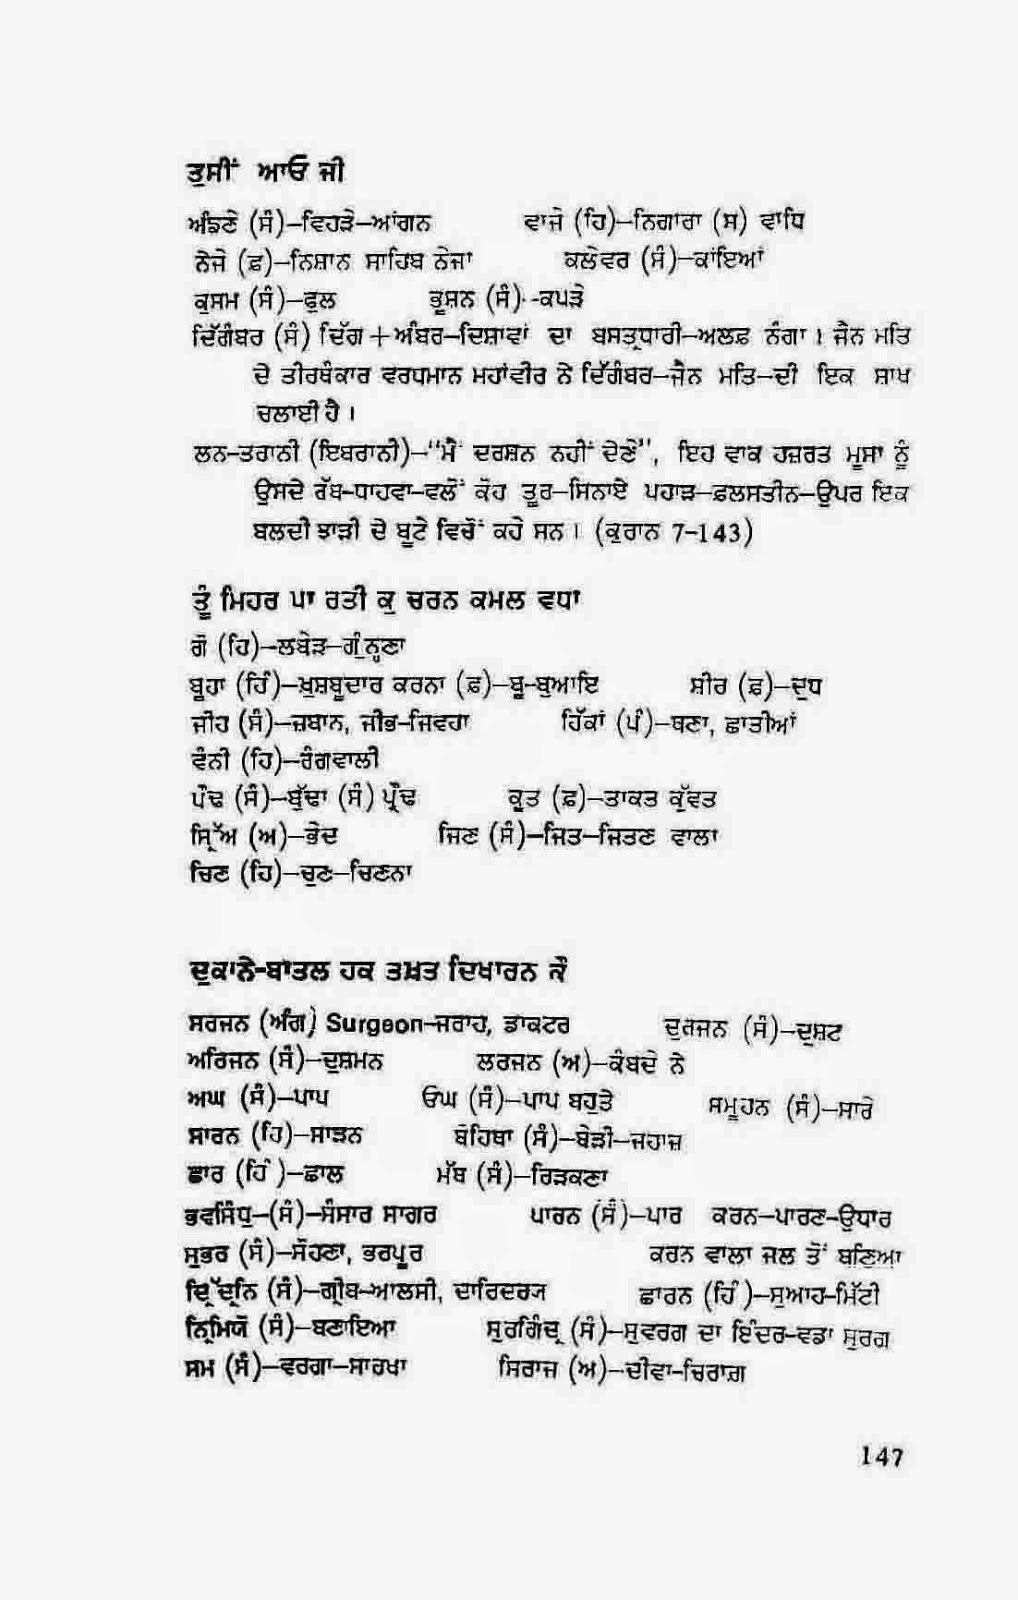 ਤੁਸੀਂ ਆਓ ਜੀ
ਅੰਙਣੇ (ਸੰ)–ਵਿਹੜੇ–ਆਂਗਨ ਵਾਜੇ (ਹਿ)–ਨਿਗਾਰਾ (ਸ) ਵਾਧਿ
ਨੇਜੇ (ਫ਼)–ਨਿਸ਼ਾਨ ਸਾਹਿਬ ਨੇਜਾ ਕਲੇਵਰ (ਸੰ)–ਕਾਂਇਆਂ
ਕੁਸਮ (ਸੰ)–ਫੁਲ ਭੂਸ਼ਨ (ਸੰ)--ਕਪੜੇ
ਦਿੱਗੰਬਰ (ਸੰ) ਦਿੱਗ+ਅੰਬਰ–ਦਿਸ਼ਾਵਾਂ ਦਾ ਬਸਤ੍ਰਧਾਰੀ–ਅਲਫ਼ ਨੰਗਾ। ਜੈਨ ਮਤਿ
ਦੇ ਤੀਰਥੰਕਾਰ ਵਰਧਮਾਨ ਮਹਾਂਵੀਰ ਨੇ ਦਿੱਗੰਬਰ–ਜੈਨ ਮਤਿ–ਦੀ ਇਕ ਸ਼ਾਖ
ਚਲਾਈ ਹੈ।
ਲਨ-ਤਰਾਨੀ (ਇਬਰਾਨੀ)–“ਮੈਂ ਦਰਸ਼ਨ ਨਹੀਂ ਦੇਣੇ”, ਇਹ ਵਾਕ ਹਜ਼ਰਤ ਮੂਸਾ ਨੂੰ
ਉਸਦੇ ਰੱਬ-ਯਾਹਵਾ–ਵਲੋਂ ਕੋਹ ਤੂਰ–ਸਿਨਾਏ ਪਹਾੜ–ਫ਼ਲਸਤੀਨ–ਉਪਰ ਇਕ
ਬਲਦੀ ਝਾੜੀ ਦੇ ਬੂਟੇ ਵਿਚੋਂ ਕਹੇ ਸਨ। (ਕੁਰਾਨ 7-143)
ਤੂੰ ਮਿਹਰ ਪਾ ਰਤੀ ਕੁ ਚਰਨ ਕਮਲ ਵਧਾ
ਗੋ (ਹਿ)–ਲਬੇੜ–ਗੁੰਨ੍ਹਣਾ
ਬੂਹਾ (ਹਿੰ)–ਖ਼ੁਸ਼ਬੂਦਾਰ ਕਰਨਾ (ਫ਼)–ਬੂ-ਬੁਆਇ ਸ਼ੀਰ (ਫ਼)–ਦੁਧ
ਜੀਹ (ਸੰ)–ਜ਼ਬਾਨ, ਜੀਭ–ਜਿਵਹਾ ਹਿੱਕਾਂ (ਪੰ)–ਥਣਾ, ਛਾਤੀਆਂ
ਵੰਨੀ (ਹਿ)–ਰੰਗਵਾਲੀ
ਪੌਢ (ਸੰ)–ਬੁੱਢਾ (ਸੰ) ਪ੍ਰੌਢ ਕੂਤ (ਫ਼)–ਤਾਕਤ ਕੁੱਵਤ
ਸ੍ਰਿੱਅ (ਅ)–ਭੇਦ ਜਿਣ (ਸੰ)–ਜਿਤ–ਜਿਤਣ ਵਾਲਾ
ਚਿਣ (ਹਿ)–ਚੁਣ–ਚਿਣਨਾ
ਦੁਕਾਨੇ-ਬਾਤਲ ਹਕ ਤਖ਼ਤ ਦਿਖਾਰਨ ਕੌ
ਸਰਜਨ (ਅੰਗ) Surgeon–ਜਰਾਹ, ਡਾਕਟਰ ਦੁਰਜਨ (ਸੰ)–ਦੁਸ਼ਟ
ਅਰਿਜਨ (ਸੰ)–ਦੁਸ਼ਮਨ ਲਰਜਨ (ਅ)–ਕੰਬਦੇ ਨੇ
ਅਘ (ਸੰ)–ਪਾਪ ਓਘ (ਸੰ)–ਪਾਪ ਬਹੁਤੇ ਸਮੂਹਨ (ਸੰ)–ਸਾਰੇ
ਸਾਰਨ (ਹਿ)–ਸਾੜਨ ਬੋਹਿਥਾ (ਸੰ)–ਬੇੜੀ–ਜਹਾਜ਼
ਛਾਰ (ਹਿੰ)–ਛਾਲ ਮੱਥ (ਸੰ)–ਰਿੜਕਣਾ
ਭਵਸਿੰਧੁ–(ਸੰ)–ਸੰਸਾਰ ਸਾਗਰ ਪਾਰਨ (ਸੰ)–ਪਾਰ ਕਰਨ–ਪਾਰਣ–ਉਧਾਰ
ਸੁਭਰ (ਸੰ)–ਸੋਹਣਾ, ਭਰਪੂਰ ਕਰਨ ਵਾਲਾ ਜਲ ਤੋਂ ਬਣਿਆ
ਦ੍ਰਿੱਦ੍ਰਨਿ (ਸੰ)–ਗ੍ਰੀਬ–ਆਲਸੀ, ਦਾਰਿਦਰਯ ਛਾਰਨ (ਹਿੰ)–ਸੁਆਹ–ਮਿੱਟੀ
ਨ੍ਰਿਮਿਯੋ (ਸੰ)–ਬਣਾਇਆ ਸੁਰਗਿੰਦ੍ਰ (ਸੰ)–ਸੁਵਰਗ ਦਾ ਇੰਦਰ–ਵਡਾ ਸੁਰਗ
ਸਮ (ਸੰ)–ਵਰਗਾ–ਸਾਰਖਾ ਸਿਰਾਜ (ਅ)–ਦੀਵਾ–ਚਿਰਾਗ਼
147